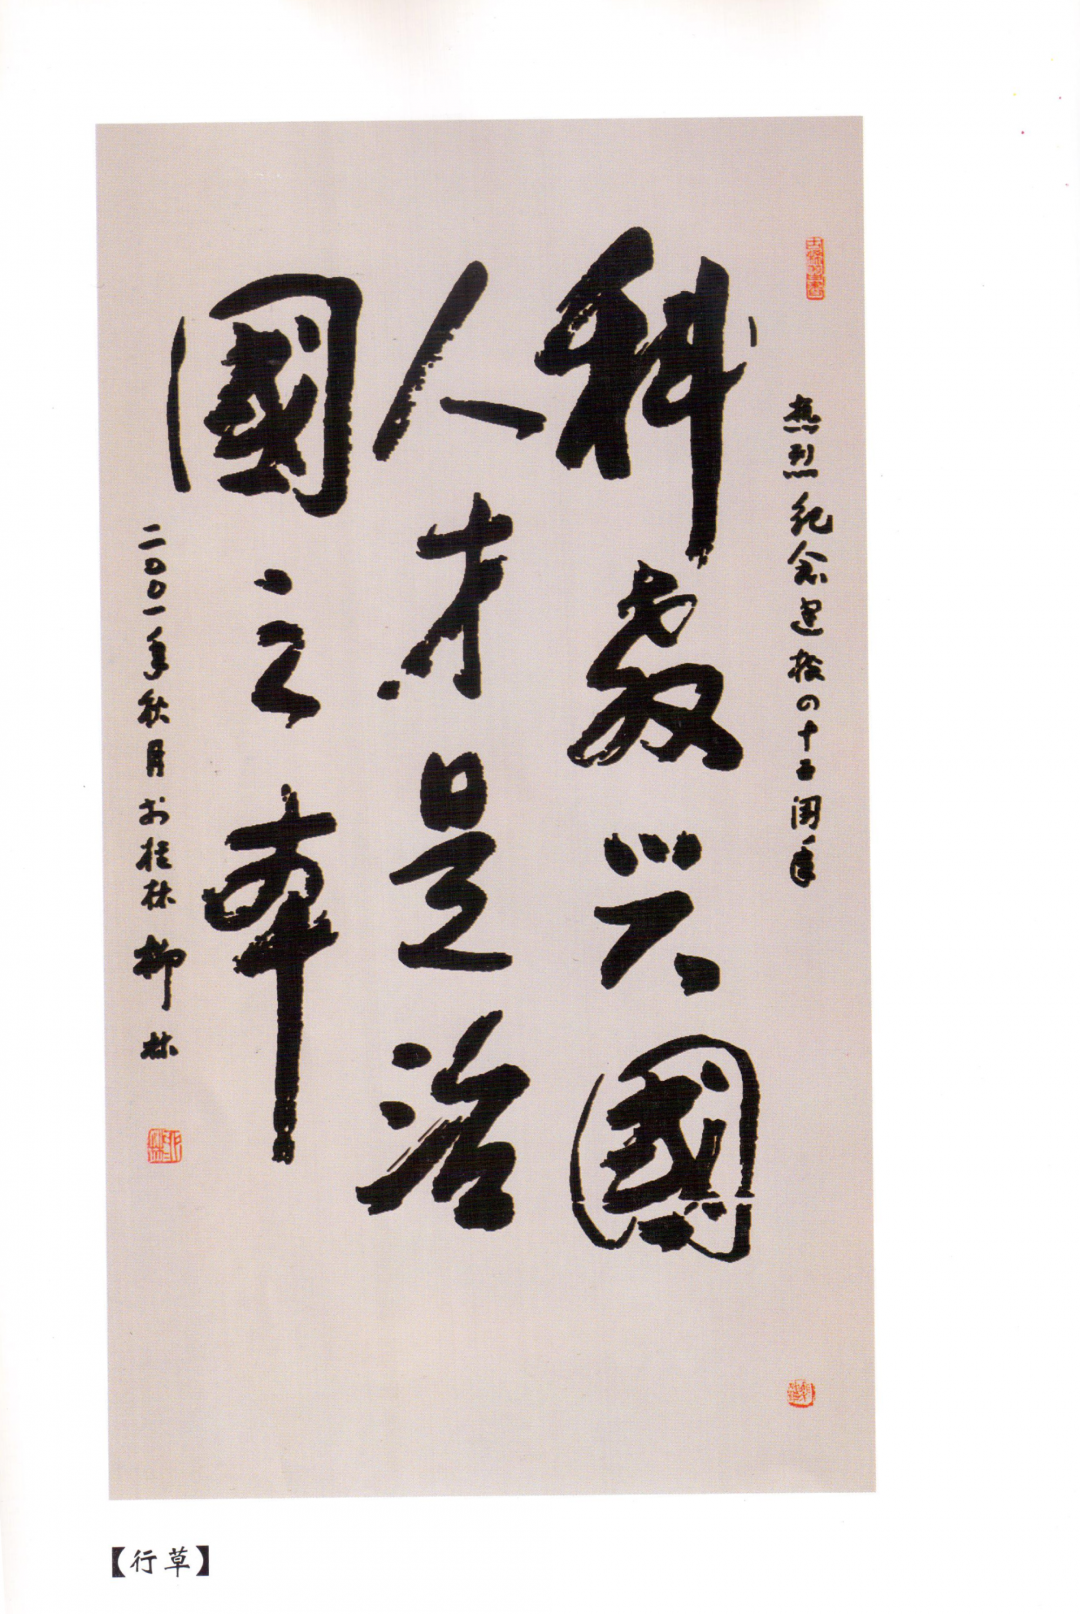 热烈纪念建校四十五周年
科教兴國
人才是治
國之本
二〇〇一年秋月于桂林 柳林
【行草】